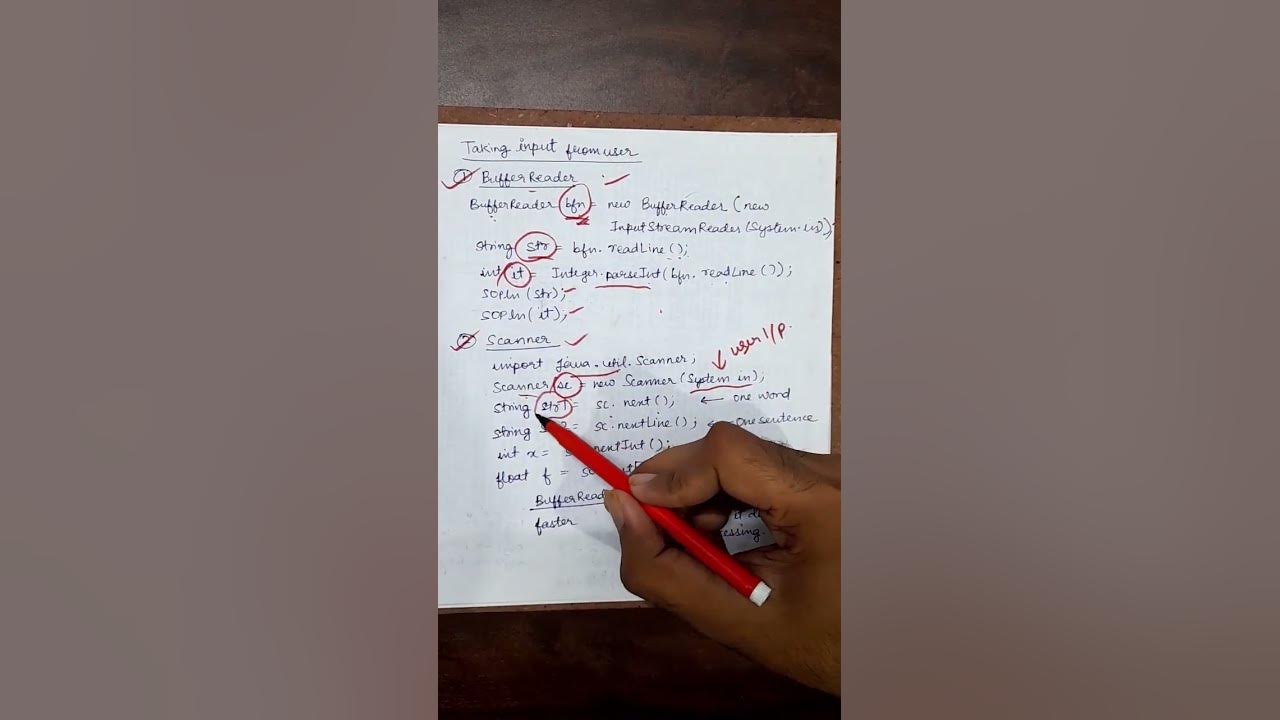 Taking input from user
① BufferReader
BufferReader bfn = new BufferReader (new
InputStreamReader (System.in));
String str = bfn. readLine ();
int it = Integer.parseInt (bfn. readLine ());
SOPln (str);
SOPln (it);
② Scanner
import java.util.Scanner;
user I/P.
Scanner sc = new Scanner (System in);
String str1 = sc. next (); ← one word
String = sc.nextLine (); ← One sentence
int x = nextInt ();
float f =
BufferRead
faster